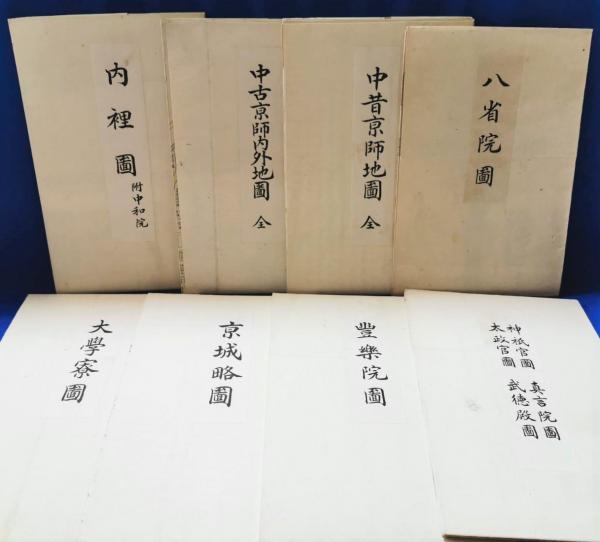 内裡圖
附中和院
中古京師内外地圖 全
中昔京師地圖 全
八省院圖
大學寮圖
京城略圖
豐樂院圖
神祇官圖
太政官圖
真言院圖
武徳殿圖